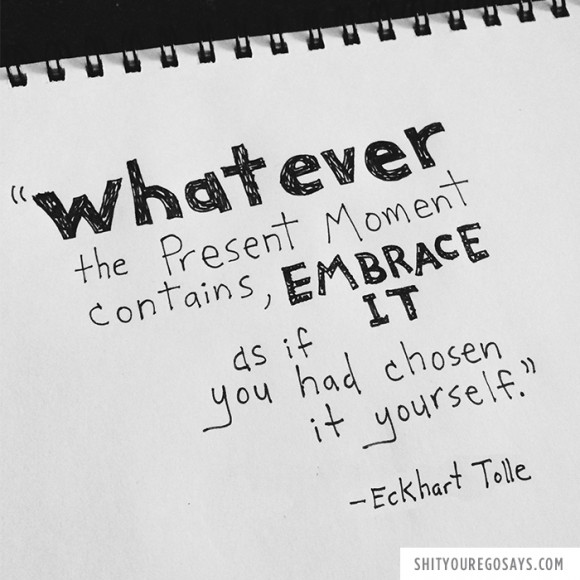 “Whatever
the Present Moment
contains, EMBRACE
IT
as if
you had chosen
it yourself.”
—Eckhart Tolle
SHITYOUREGOSAYS.COM